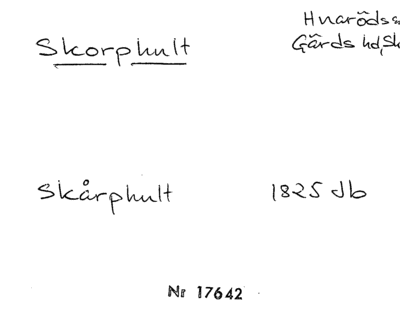 Skorphult Hnaröds s
Gärds hd, Sk
Skårphult 1825 db
Nr 17642